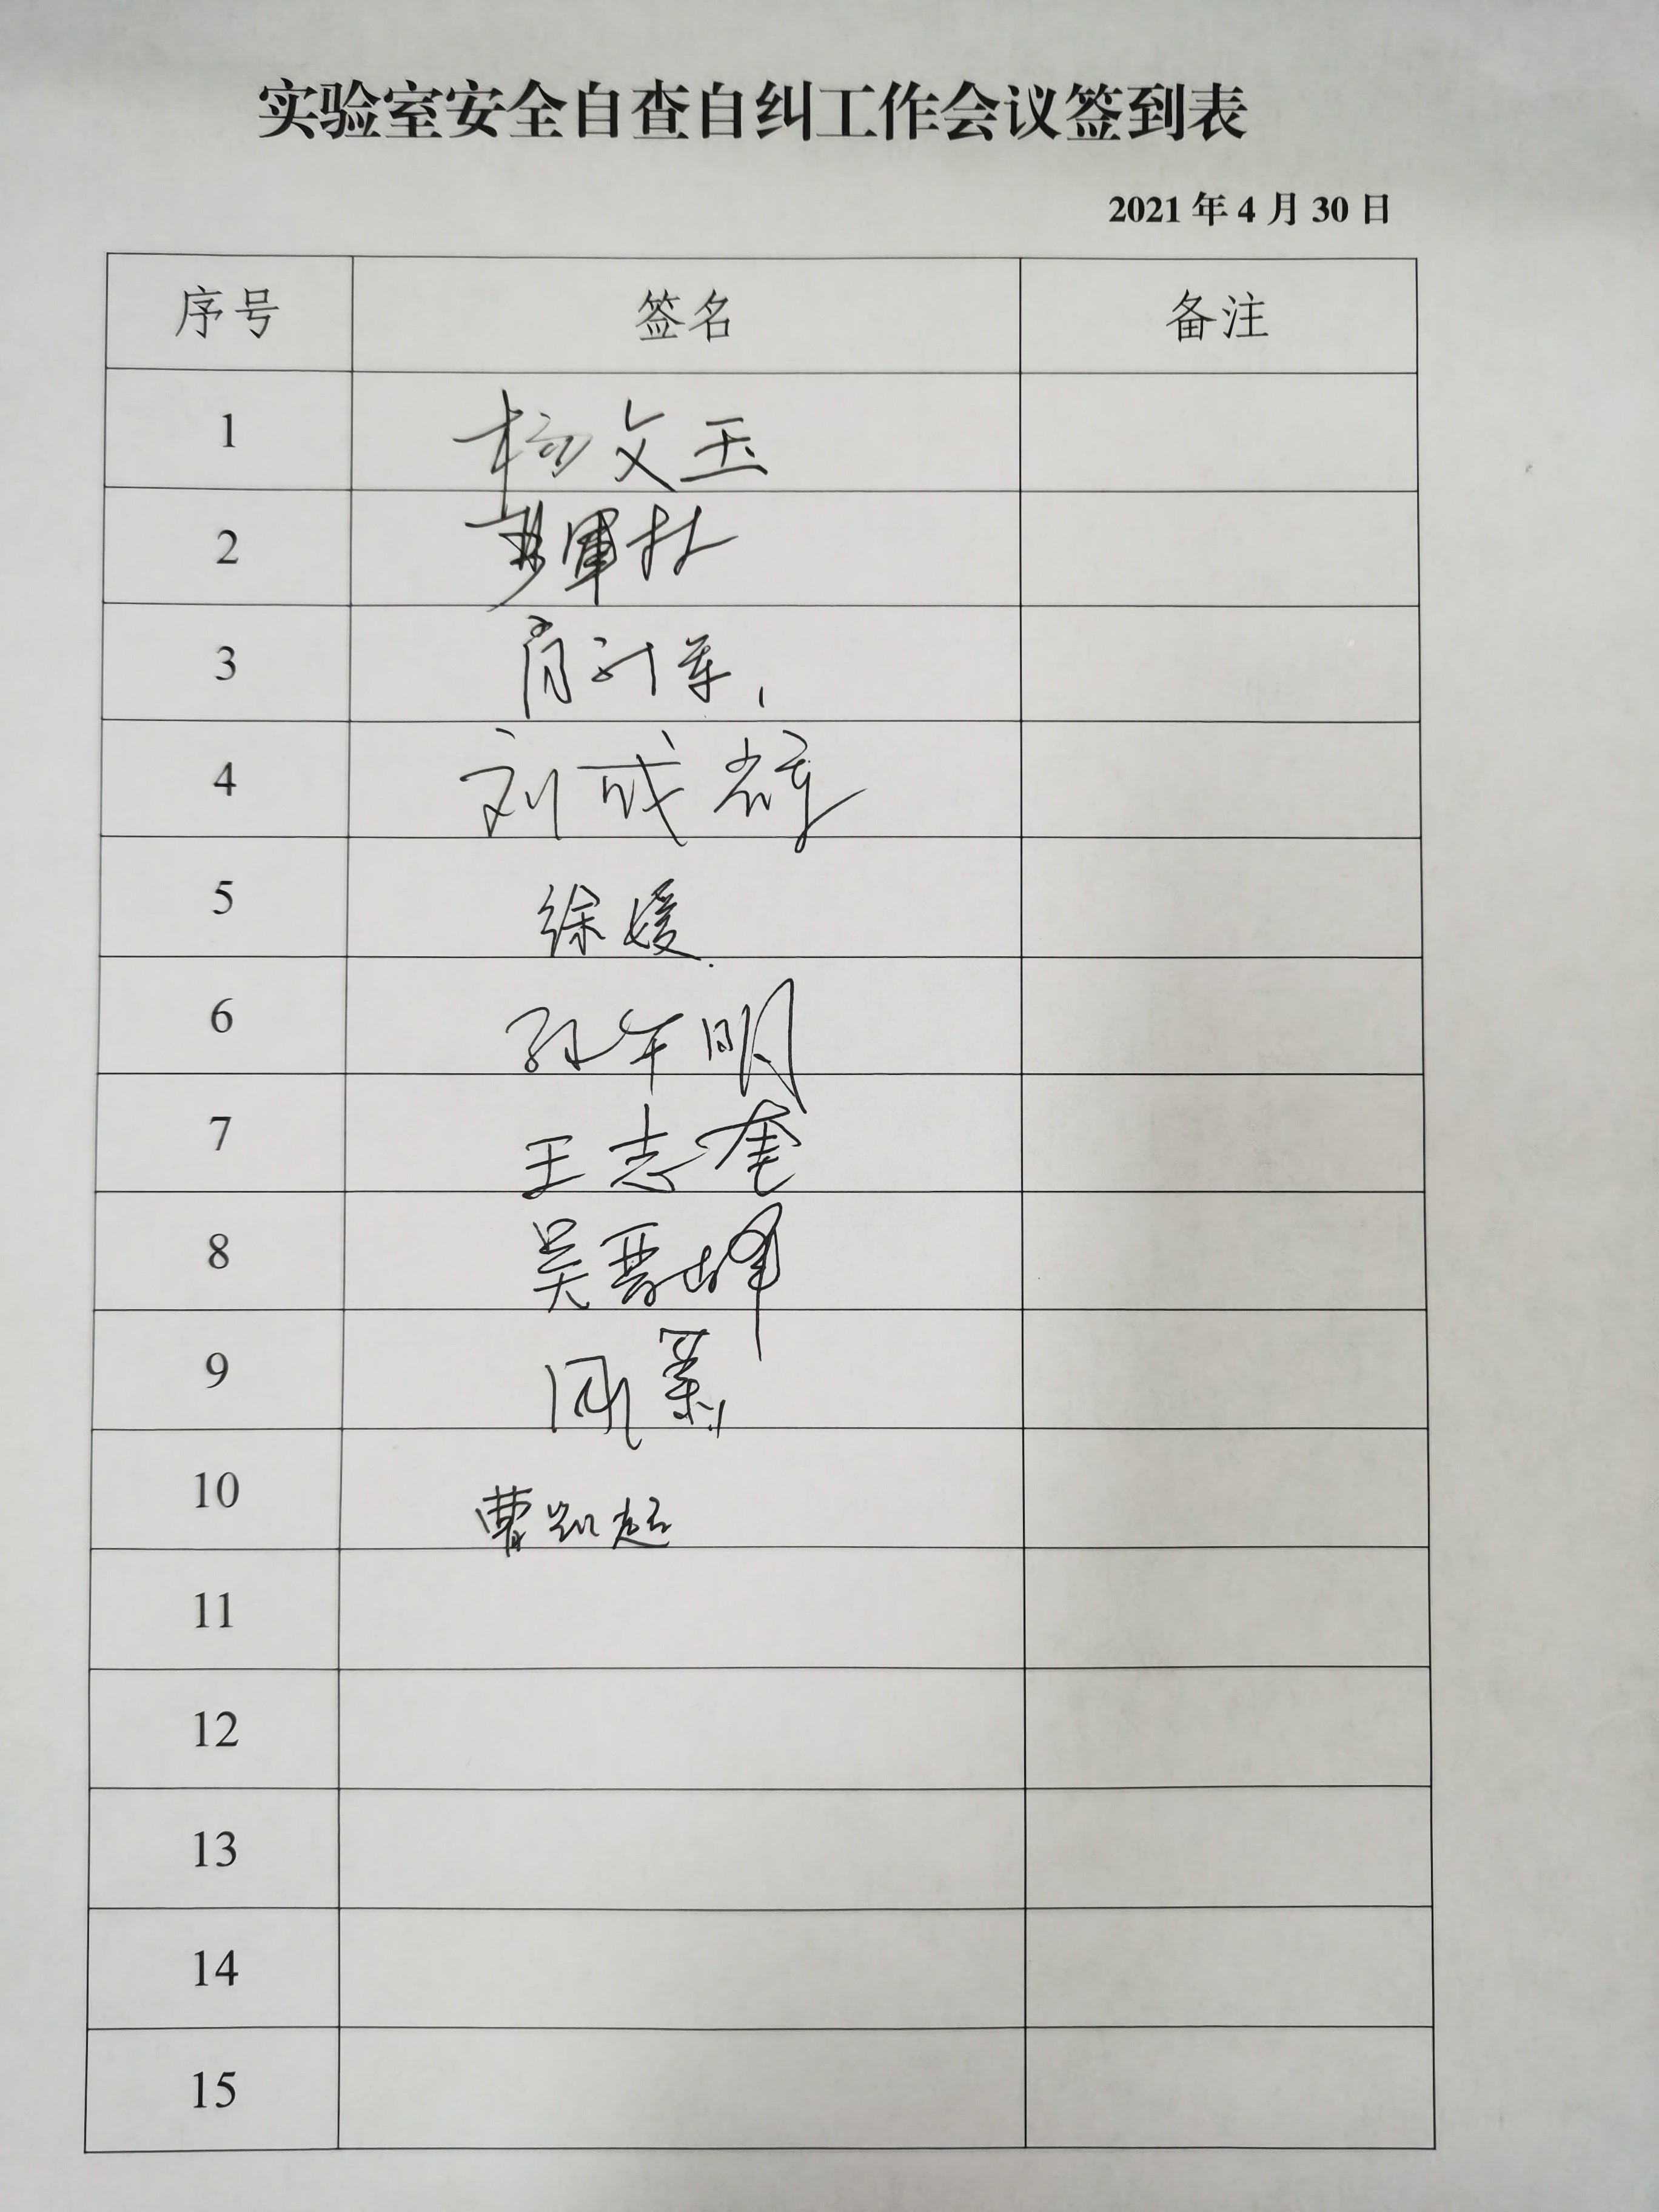 实验室安全自查自纠工作会议签到表
2021 年 4 月 30 日
序号 签名 备注
1 杨文玉
2
3
4 刘成
5 徐媛
6 孙年明
7 王志奎
8 吴晋
9
10 曹凯超
11
12
13
14
15